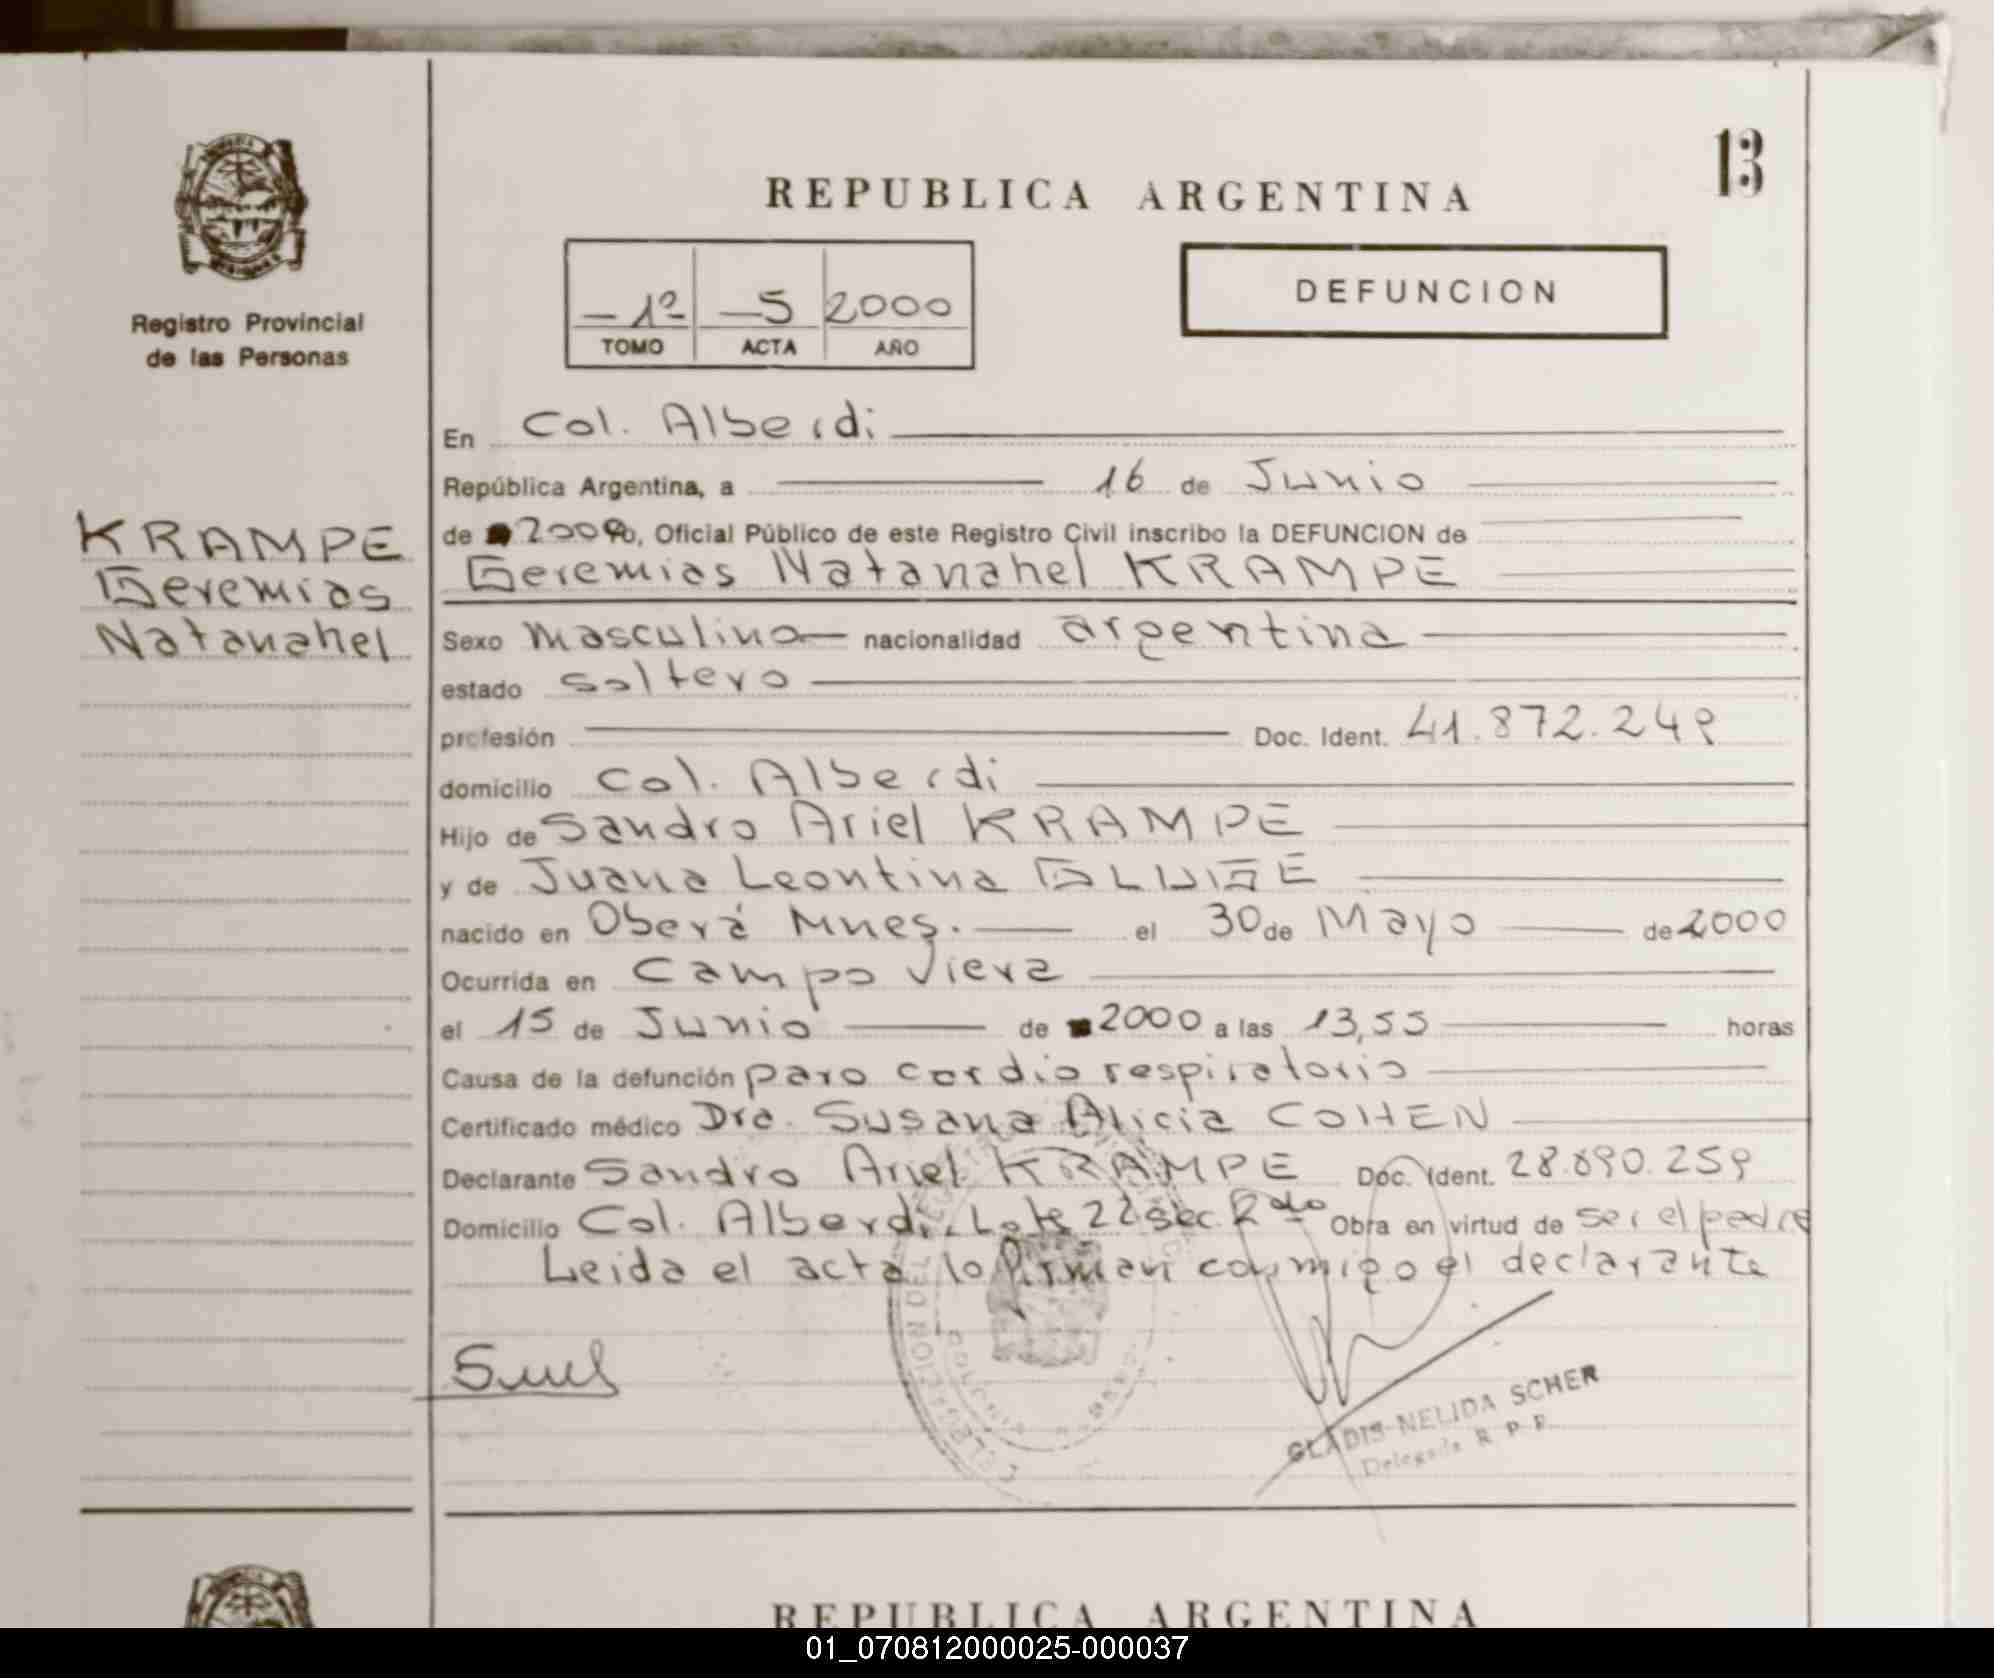 13
REPUBLICA ARGENTINA
DEFUNCION
— 1º — 5 2000
TOMO ACTA AÑO
Registro Provincial
de las Personas
KRAMPE
Geremias
Natanahel
En Col. Alberdi
República Argentina, a 16 de Junio
de 2000, Oficial Público de este Registro Civil inscribo la DEFUNCION de
Geremias Natanahel KRAMPE
Sexo masculino nacionalidad argentina
estado soltero
profesión Doc. Ident. 41.872.249
domicilio Col. Alberdi
Hijo de Sandro Ariel KRAMPE
y de Juana Leontina GLUGE
nacido en Oberá Mnes. el 30 de Mayo de 2000
Ocurrida en Campo Viera
el 15 de Junio de 2000 a las 13,55 horas
Causa de la defunción paro cardio respiratorio
Certificado médico Dra. Susana Alicia COHEN
Declarante Sandro Ariel KRAMPE Doc. Ident. 28.890.259
Domicilio Col. Alberdi, Lote 22 sec. 2da Obra en virtud de ser el padre
Leida el acta lo firman conmigo el declarante
GLADIS NELIDA SCHER
Delegada R. P. P.
REPUBLICA ARGENTINA
01_070812000025-000037